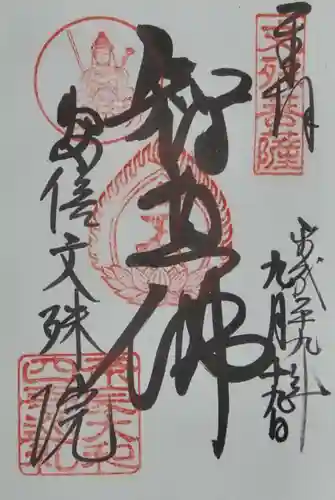 奉拝
文殊菩薩
平成二十九年
九月十九日
智恵佛
安倍文殊院